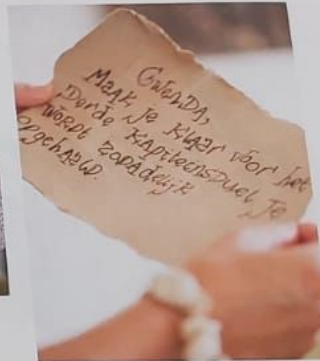 GWENDA,
MAAK JE KLAAR VOOR HET
DERDE KAPITEINSDUEL. JE
WORDT ZODADELIJK
OPGEHAALD.